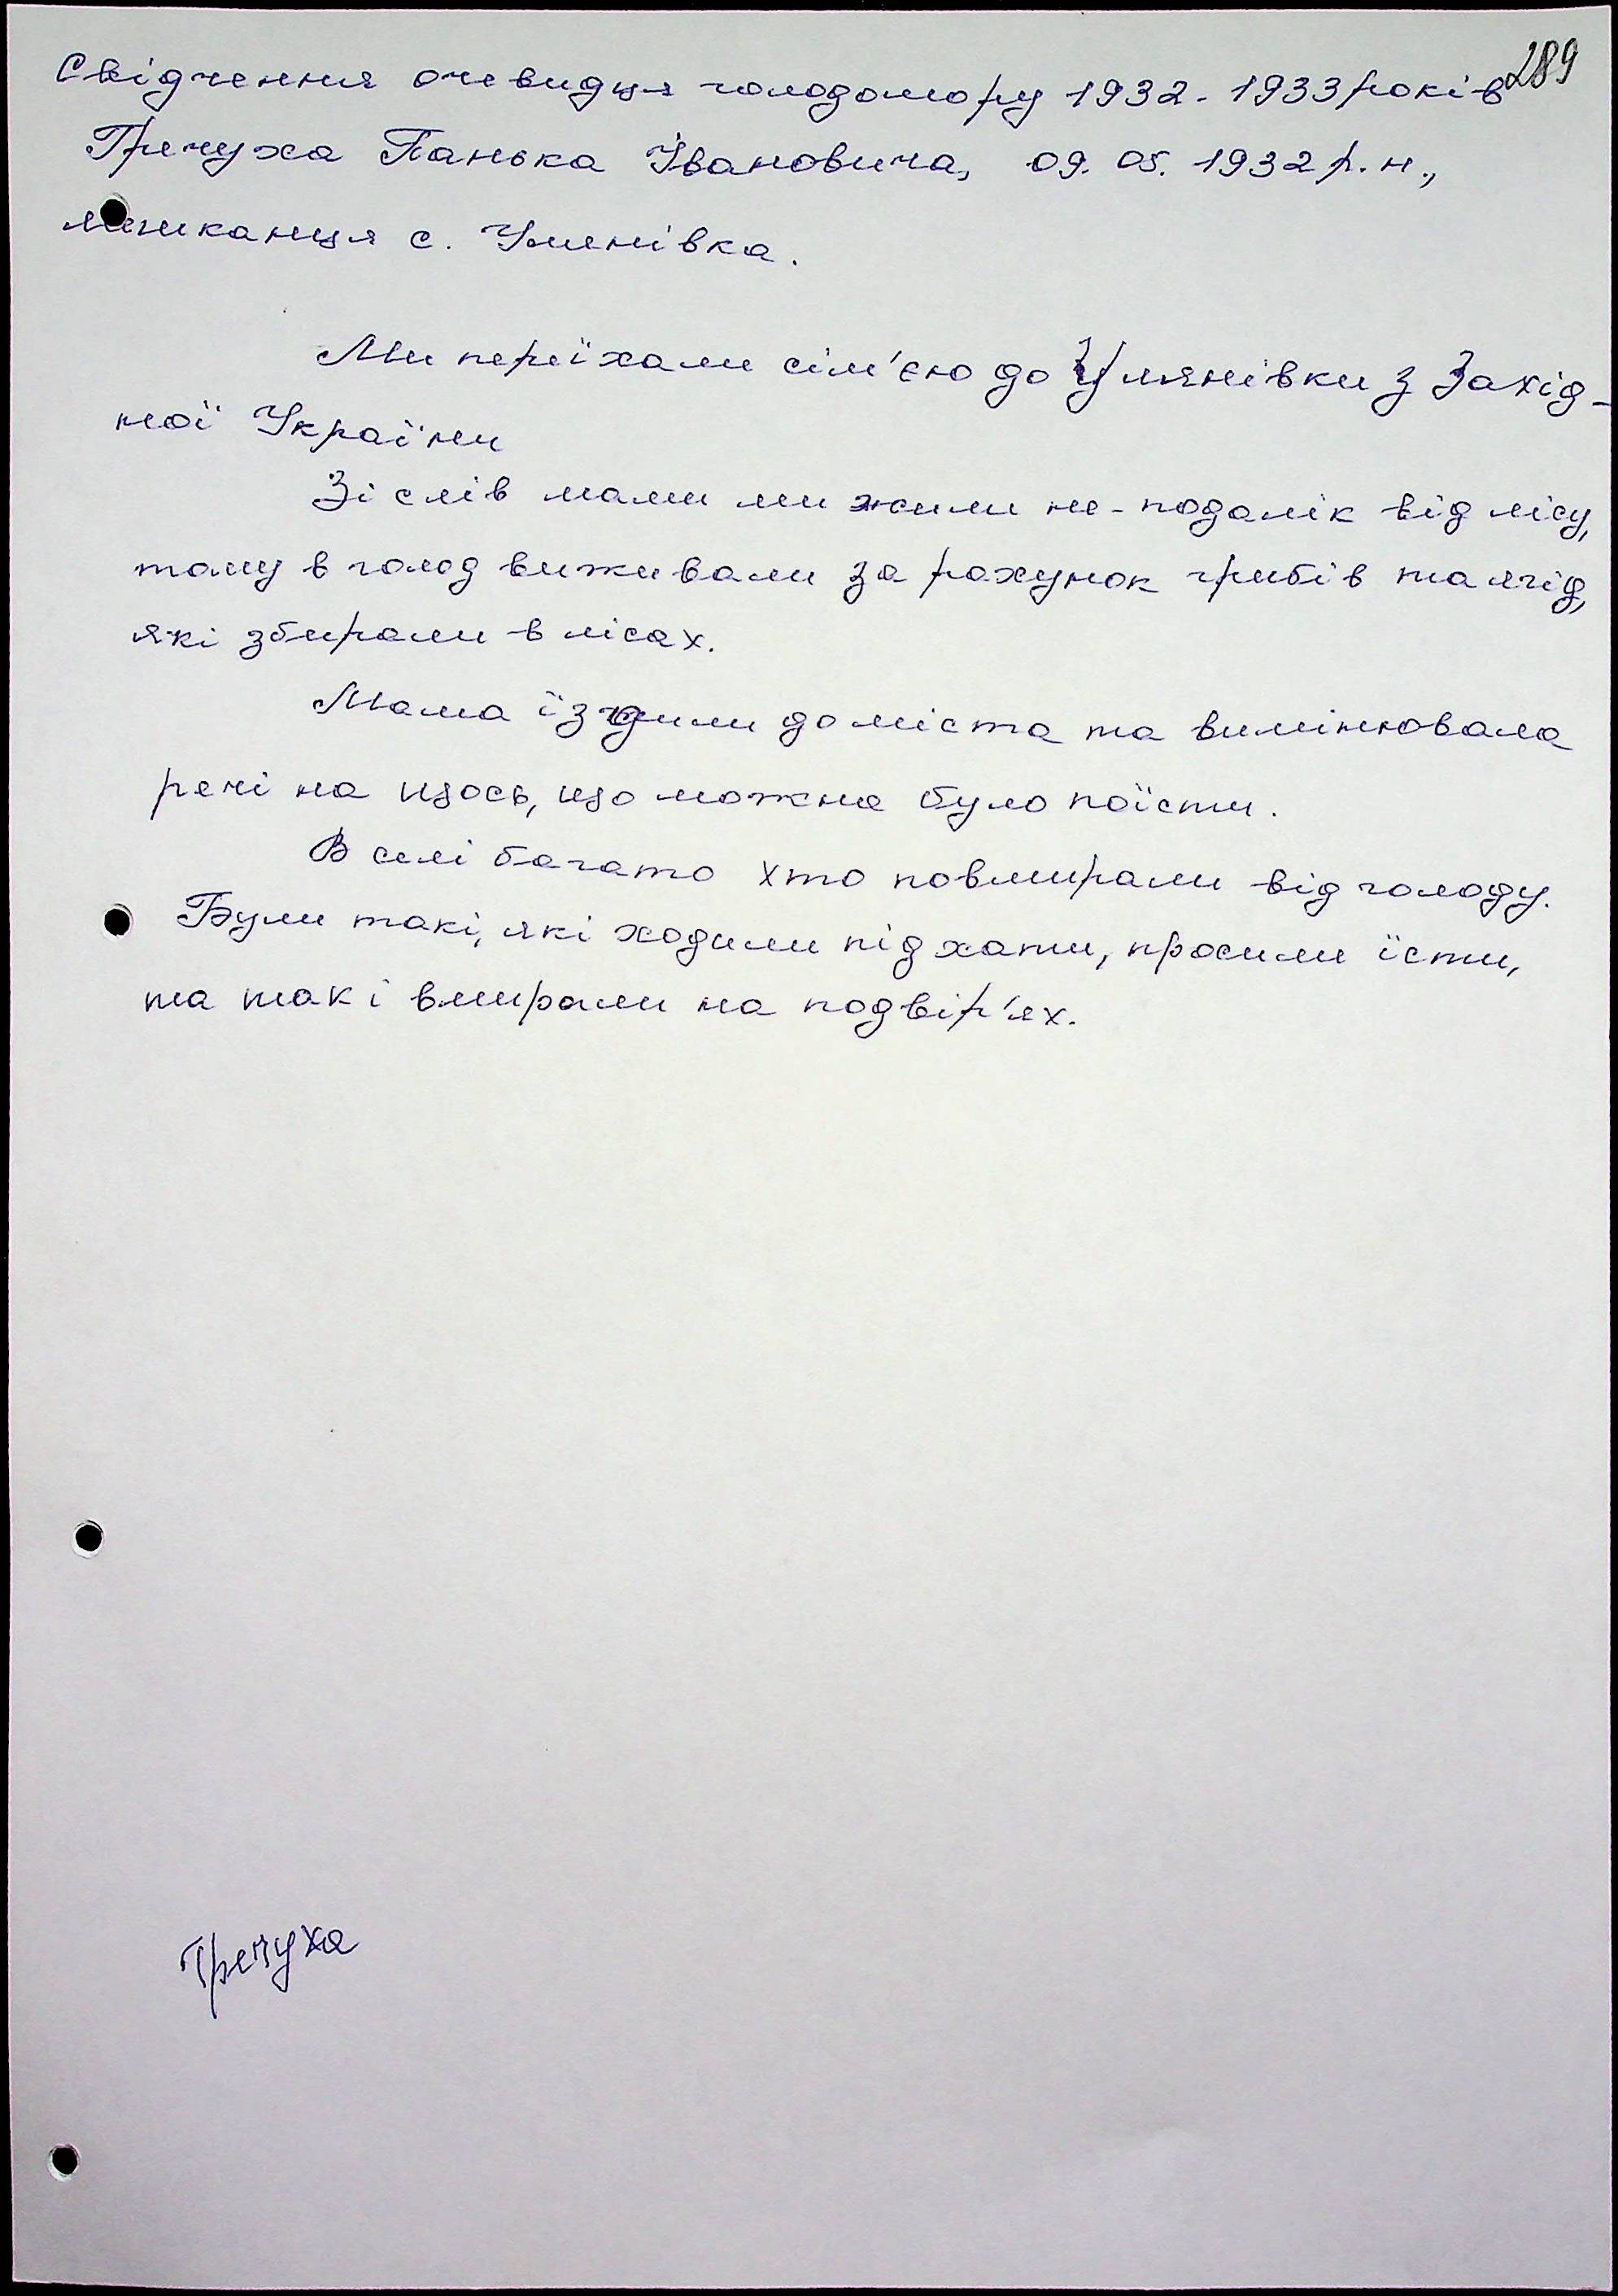 289
Свідчення очевидця голодомору 1932-1933 років
Гречуха Панька Івановича, 09. 05. 1932 р. н.,
мешканця с. Улянівка.
Ми переїхали сім'єю до Улянівки з Захід-
ної України
Зі слів мами ми жили не-подалік від лісу,
тому в голод виживали за рахунок грибів та ягід,
які збирали в лісах.
Мама їздили до міста та вимінювала
речі на щось, що можна було поїсти.
В селі багато хто повмирали від голоду.
Були такі, які ходили під хати, просили їсти,
та так і вмирали на подвір'ях.
Гречуха